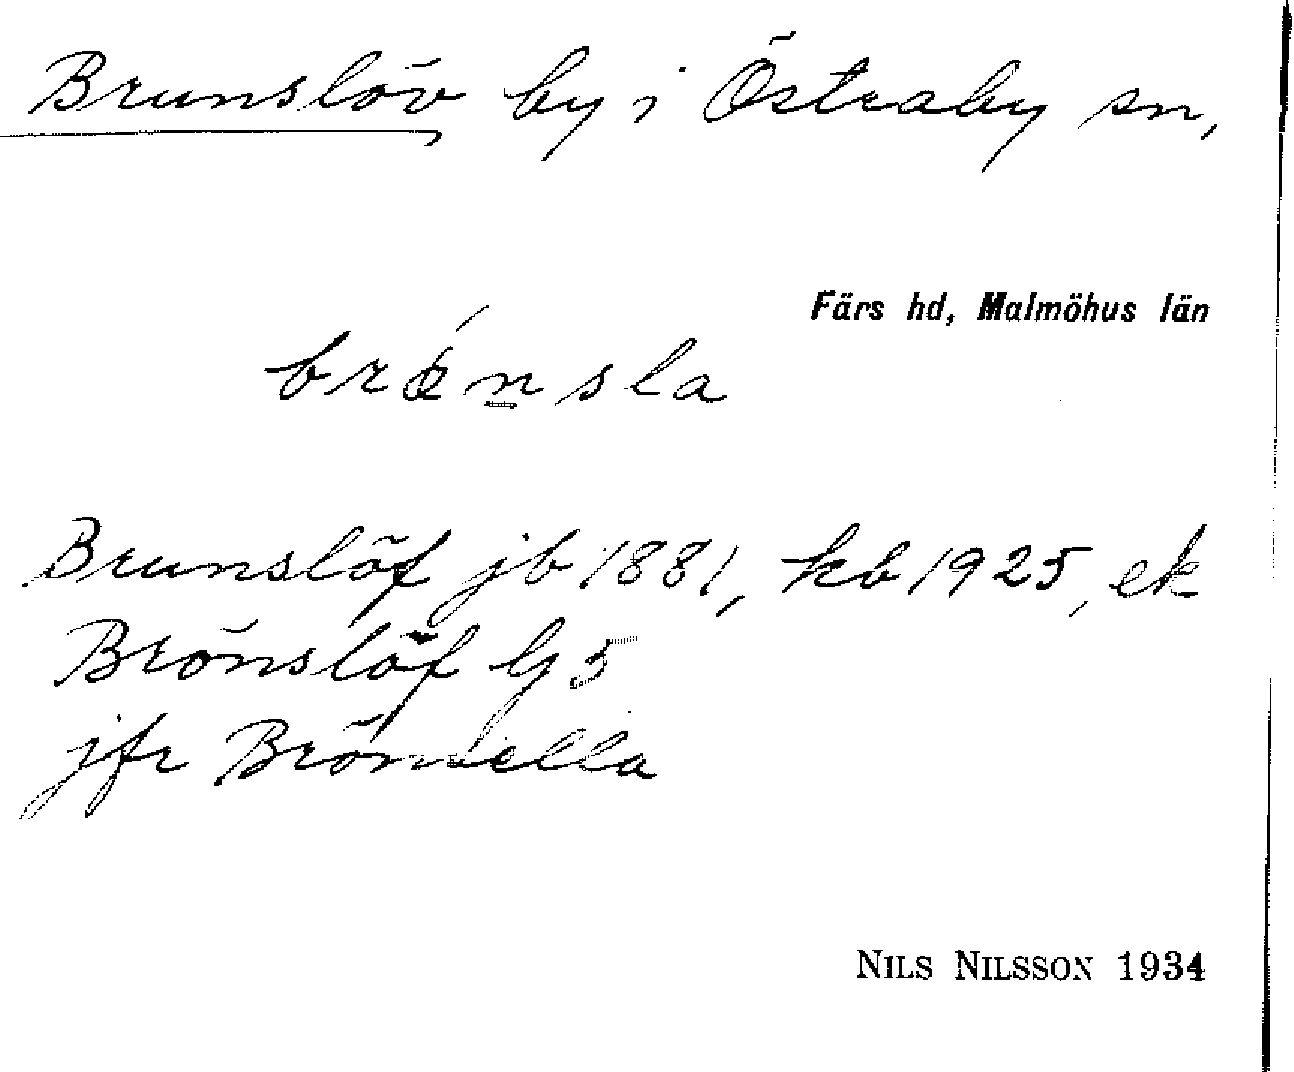 Brunslöv by i Östraby sn,
Färs hd, Malmöhus län
brǿn̲sla
Brunslöf jb 1881, kb 1925, ek
Brönslöf G 5
jfr Brönsella
NILS NILSSON 1934